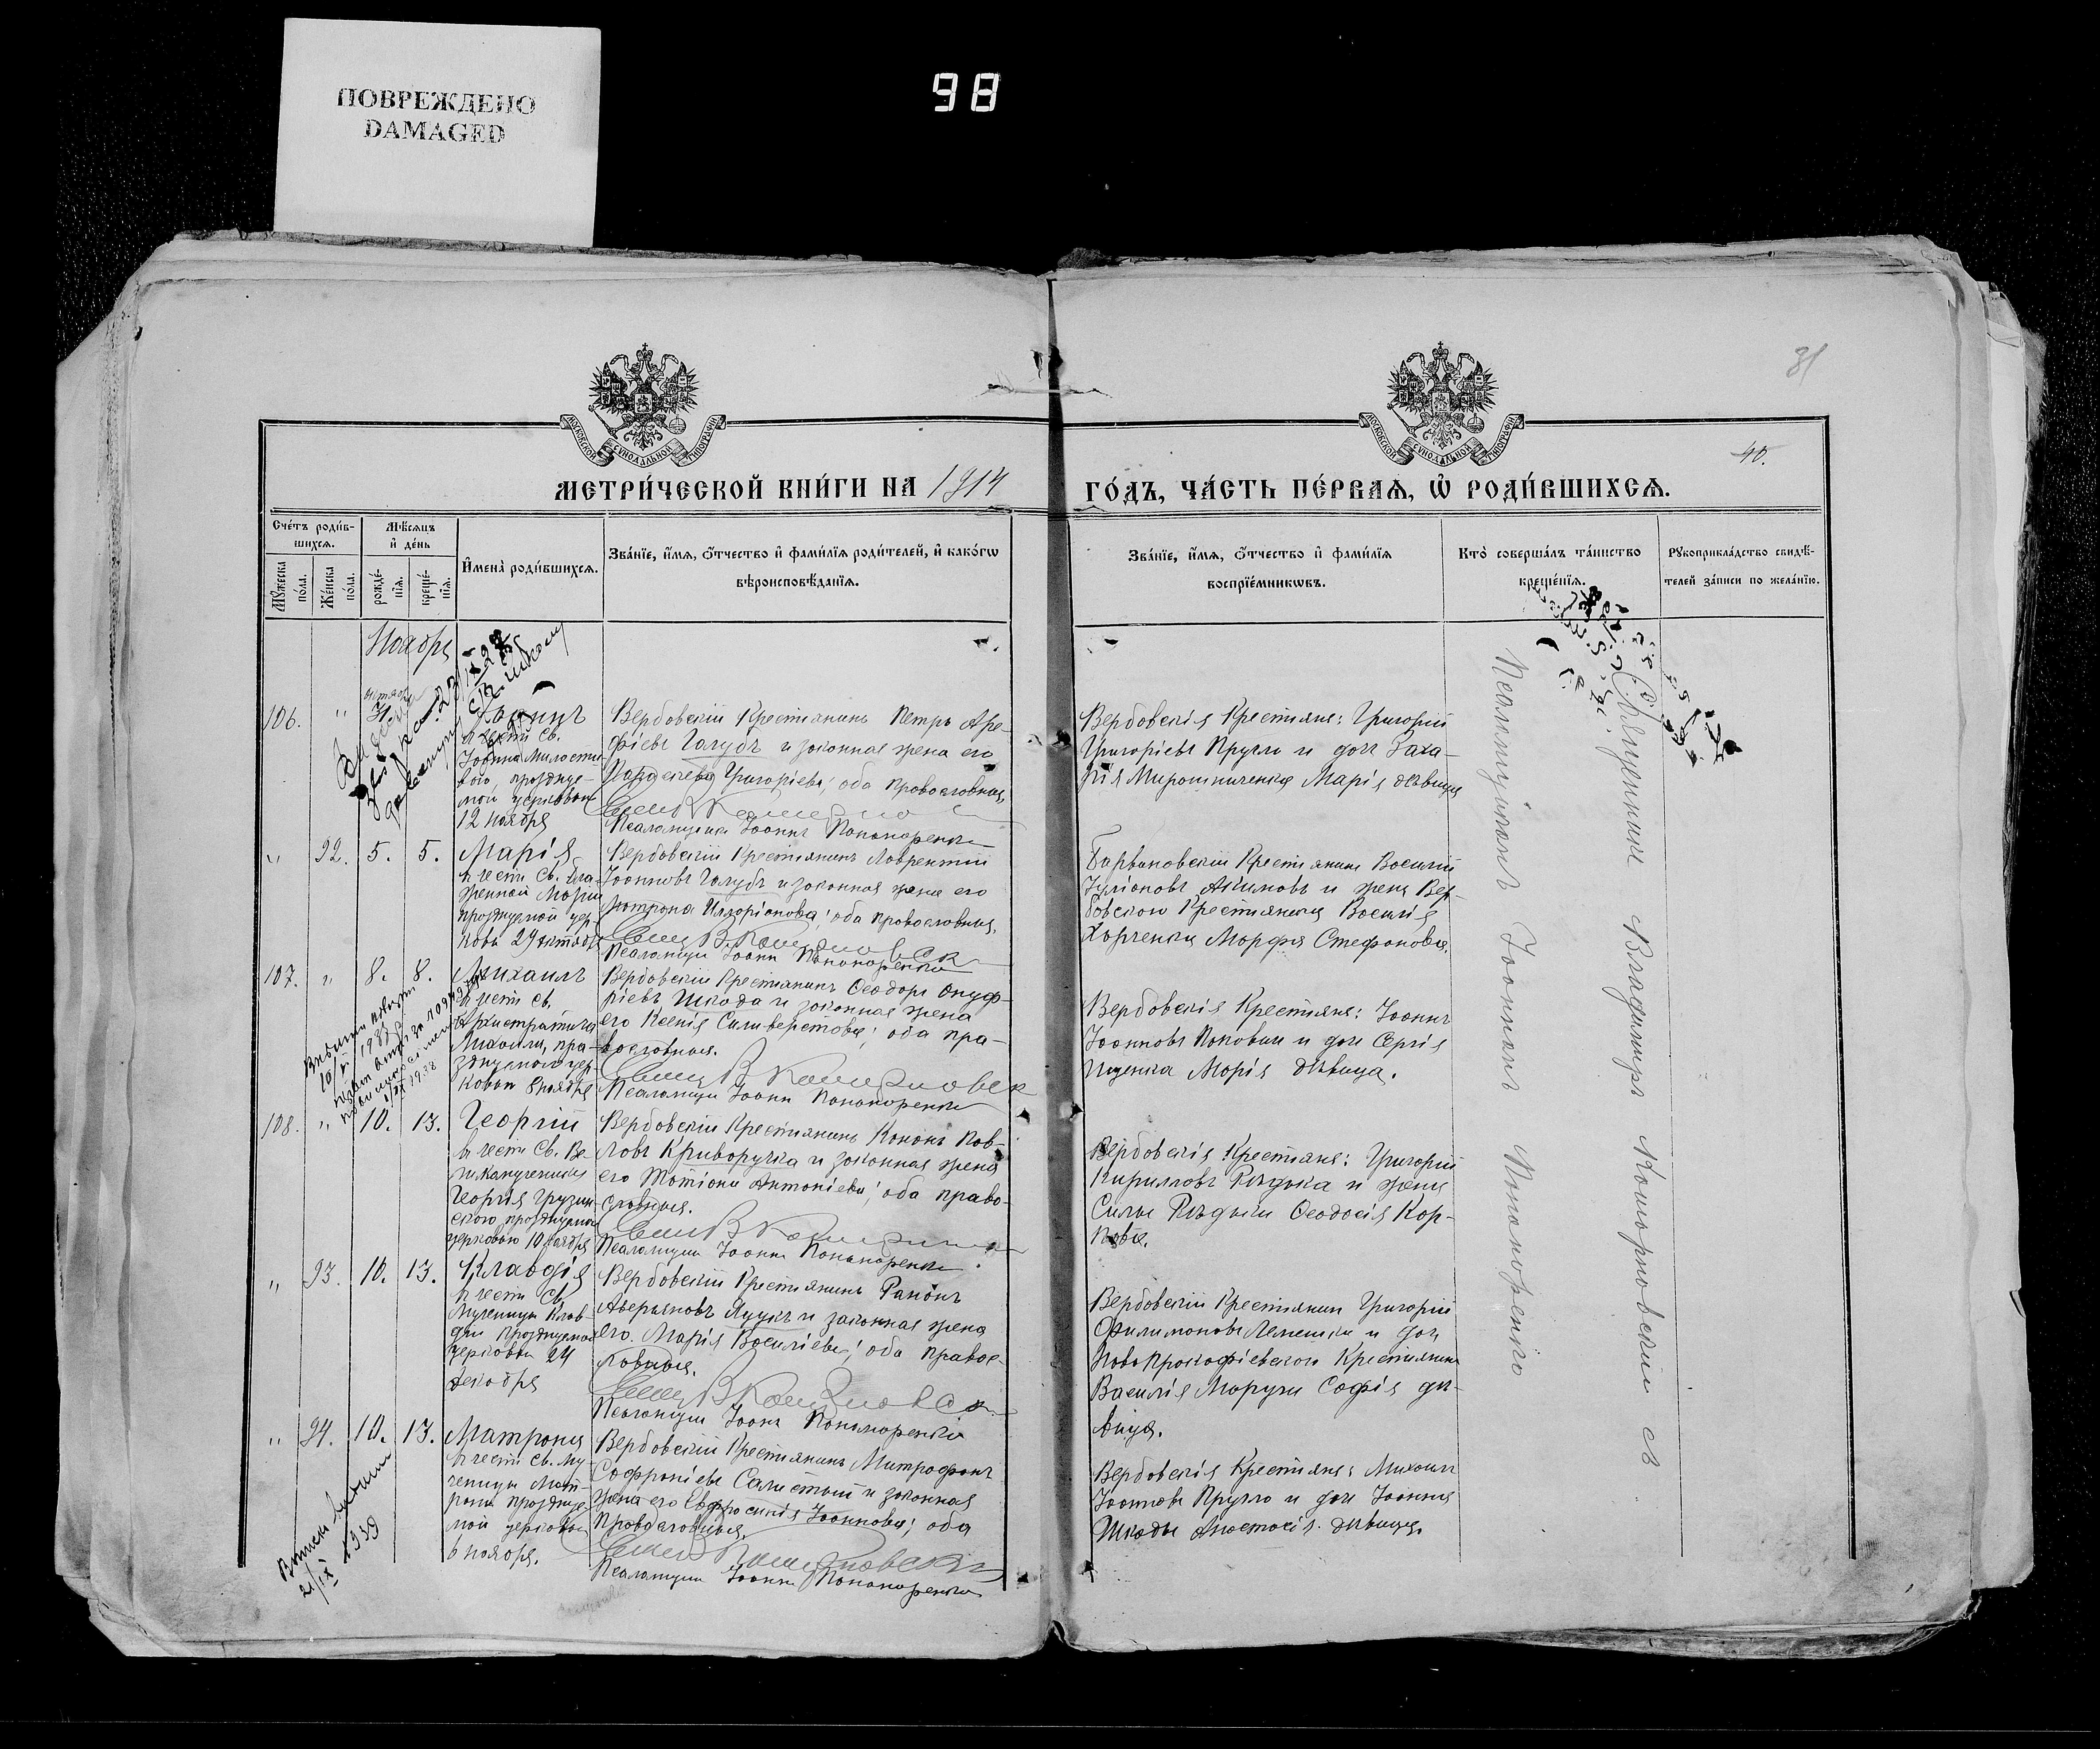 ПОВРЕЖДЕНО
DAMAGED
98
31
40.
МОСКОВСКОЙ СУНОДАЛЬНОЙ ТИПОГРАФІИ
МОСКОВСКОЙ СУНОДАЛЬНОЙ ТИПОГРАФІИ
МЕТРИ́ЧЕСКОЙ КНИ́ГИ НА 1914
ГО́ДЪ, ЧА́СТЬ ПЕ́РВАЯ, Ѡ҆ РОДИ́ВШИХСЯ.
Сче́тъ роди́в-
шихся.
Мѣ́сяцъ
и҆ де́нь
Мꙋ́жеска
по́ла.
Же́нска
по́ла.
рожде́-
нїя.
креще́-
нїя.
И҆мена̀ роди́вшихся.
Зва́нїе, и҆́мя, ѻ҆́тчество и҆ фами́лїя роди́телей, и҆ како́гѡ
вѣроисповѣ́данїя.
Зва́нїе, и҆́мя, ѻ҆́тчество и҆ фами́лїя
воспрїе́мникѡвъ.
Кто̀ соверша́лъ та́инство
креще́нїя.
Рꙋкоприкла́дство свидѣ́-
телей за́писи по жела́нїю.
Ноября
106. "
Іоаннъ
въ честь Св.
Іоанна Милости-
ваго, празднуе-
мой церковью
12 ноября
Вербовскій Крестьянинъ Петръ Аре-
фіевъ Голубъ и законная жена его
Григорьева; оба православные.
Псаломщикъ Іоаннъ Пономоренко
Вербовскія Крестьяне: Григорій
Григоріевъ Кругло и дочь Заха-
рія Мирошниченка Марія дѣвица
" 92. 5. 5. Марія
въ честь Св. Бла-
женной Маріи
празднуемой цер-
ковью 29 октября
Вербовскій Крестьянинъ Лаврентій
Іоанновъ Голубъ и законная жена его
Матрона Илларіонова; оба православные.
Псаломщикъ Іоаннъ Пономоренко
Крестьянинъ Василій
Іуліановъ Акимовъ и жена Вер-
бовского Крестьянина Василія
Харченка Марфа Стефанова.
107. " 8. 8. Михаилъ
въ честь Св.
Архистратига
Михаила, пра-
зднуемого цер-
ковью 8 ноября
Вербовскій Крестьянинъ Ѳеодоръ Онуф-
ріевъ Шкода и законная жена
его Ксенія Сильверстова; оба пра-
вославные.
Псаломщикъ Іоаннъ Пономоренко
Вербовскія Крестьяне: Іоаннъ
Іоанновъ Поповичъ и дочь Сергія
Марія дѣвица.
108. " 10. 13. Георгій
въ честь Св. Ве-
ликомученика
Георгія Грузин-
ского, празднуемого
церковью 10 ноября
Вербовскій Крестьянинъ Кононъ Пав-
ловъ Криворучка и законная жена
его Татіана Антоніева; оба право-
славные.
Псаломщикъ Іоаннъ Пономоренко
Вербовскія Крестьяне: Григорій
Кирилловъ Рѣдька и жена
Силы Рѣдьки Ѳеодосія Кар-
пова.
" 93. 10. 13. Клавдія
въ честь Св.
Мученицы Клав-
діи празднуемой
церковью 24
декабря
Вербовскій Крестьянинъ
Аверьяновъ Луцкъ и законная жена
его Марія Василіева; оба правос-
лавные.
Псаломщикъ Іоаннъ Пономоренко
Вербовскій Крестьянинъ Григорій
Филимоновъ Лемешка и дочь
Новопрокофіевского Крестьянина
Василія Маручи Софія дѣ-
вица.
" 94. 10. 13. Матрона
въ честь Св. Му-
ченицы Мат-
роны празднуе-
мой церковью
6 ноября.
Вербовскій Крестьянинъ Митрофанъ
Софроніевъ и законная
жена его Евфросинія Іоаннова; оба
православные.
Псаломщикъ Іоаннъ Пономоренко
Вербовскія Крестьяне: Михаилъ
Іоанновъ Кругло и дочь Іоанна
Шкоды Анастасія дѣвица.
21/IX 1939
Священникъ Владимиръ Кошарновскій съ
Псаломщикомъ Іоанномъ Пономоренко